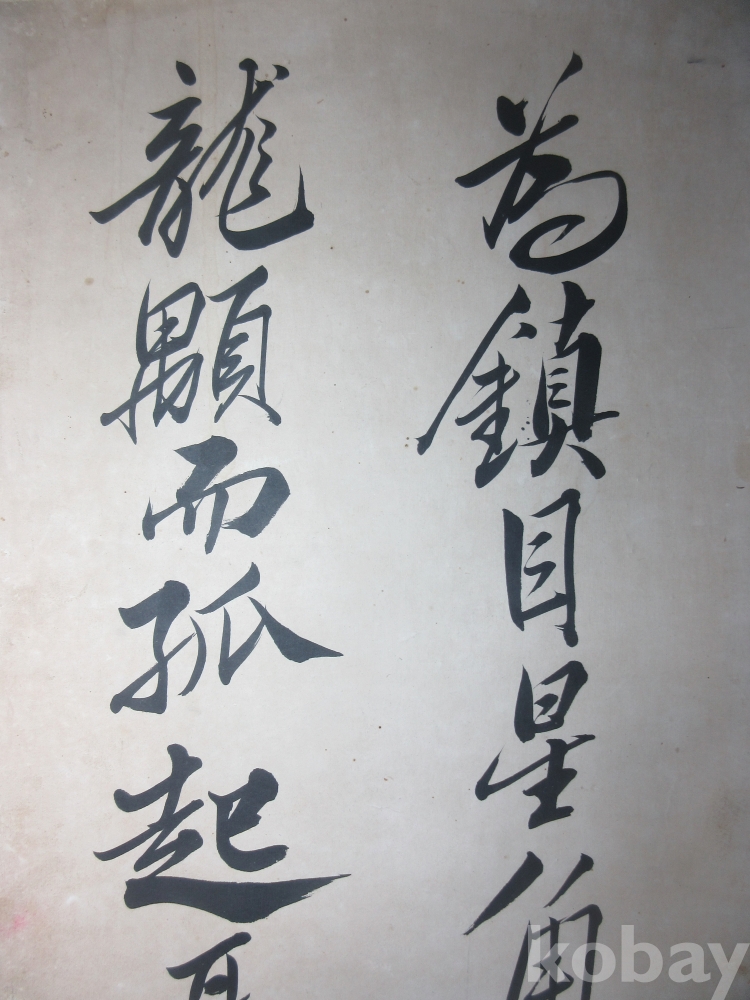 為鎮目星角
龍顒而孤起
kobay